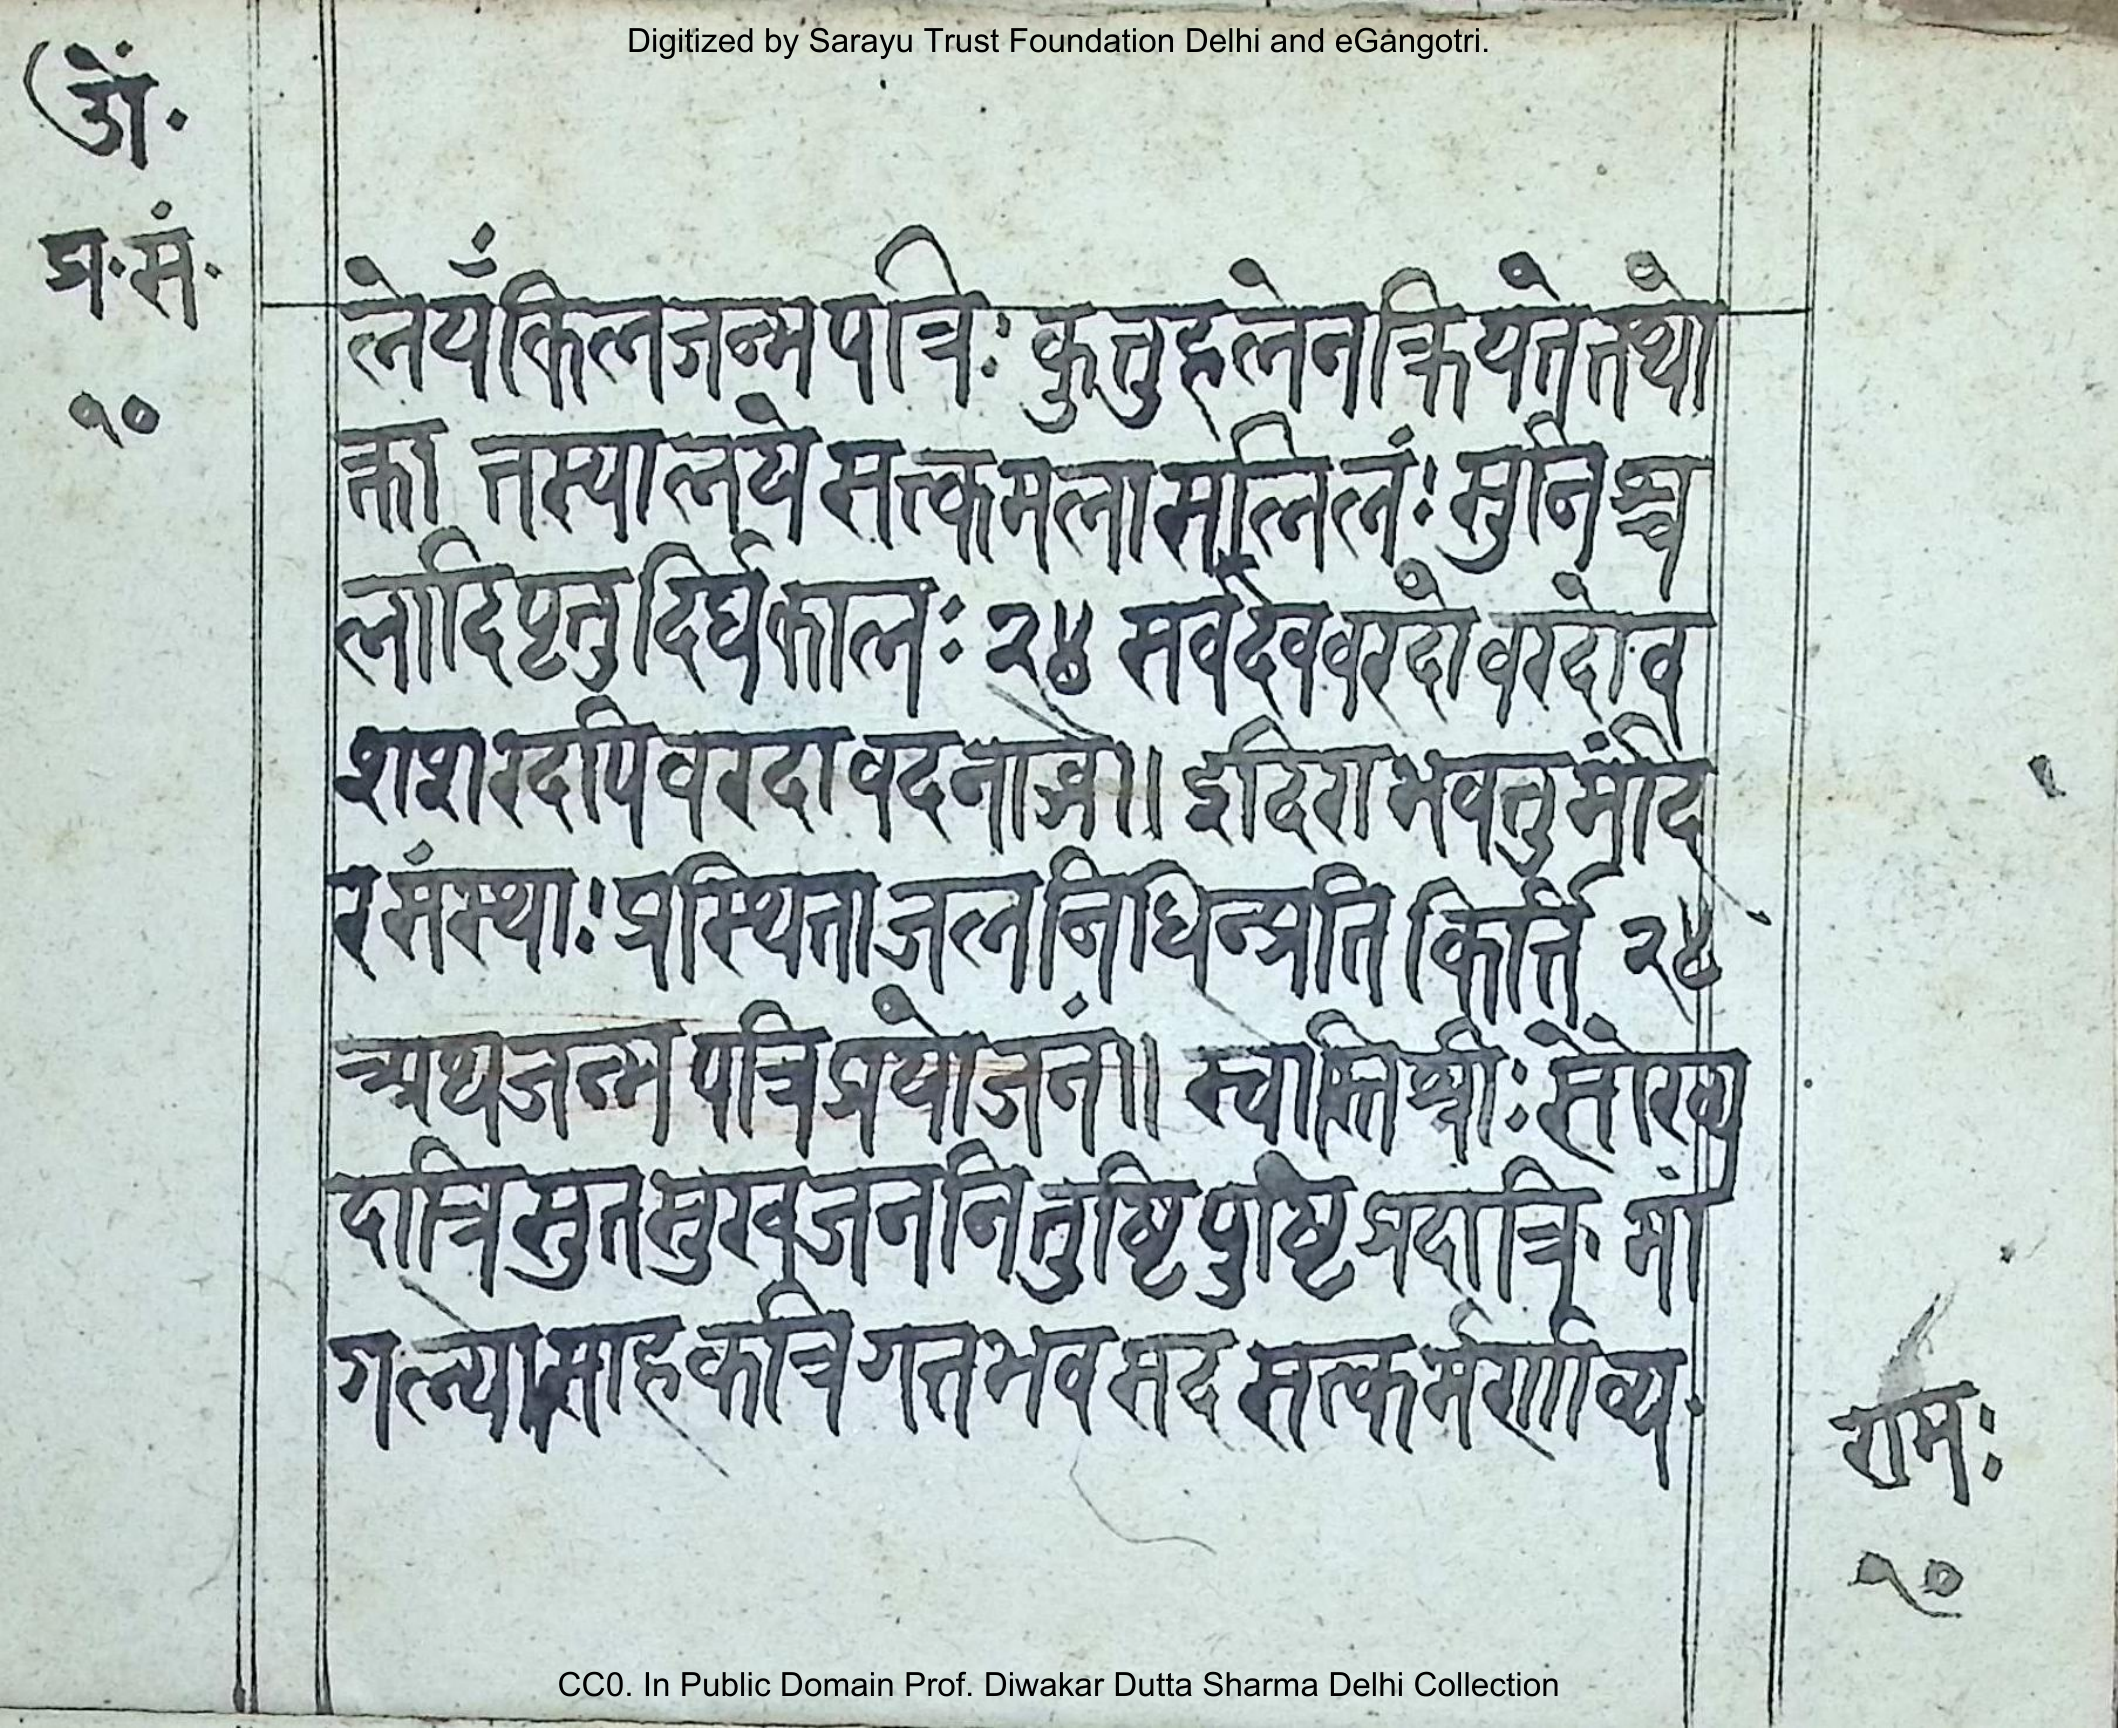 Digitized by Sarayu Trust Foundation Delhi and eGangotri.
ओं·
प्र·सं·
१०
लेयँकिलजन्मपत्रिः कुतुहलेनक्रियतेतथो
क्ता तस्यालये सत्कमलासलिलंः सुनिश्च
लादिपृतु दिर्घकालः २४ सर्वदेववरदोवरदोव
शशरदापिवरदावदनाब्जे॥ इदिराभवतुमंदि
रसंस्थाः प्रस्थिताजलनिधिन्प्रति किर्त्ति २४
अथजन्मपत्रिप्रयोजनं॥ स्वास्तिश्रीः सौख्य
दात्रि सुतसुखजननि तुष्टिपुष्टिप्रदात्रि मां
गल्योत्साहकत्रि गतभव सद सत्कर्मणाव्य
रामः
१०
CC0. In Public Domain Prof. Diwakar Dutta Sharma Delhi Collection